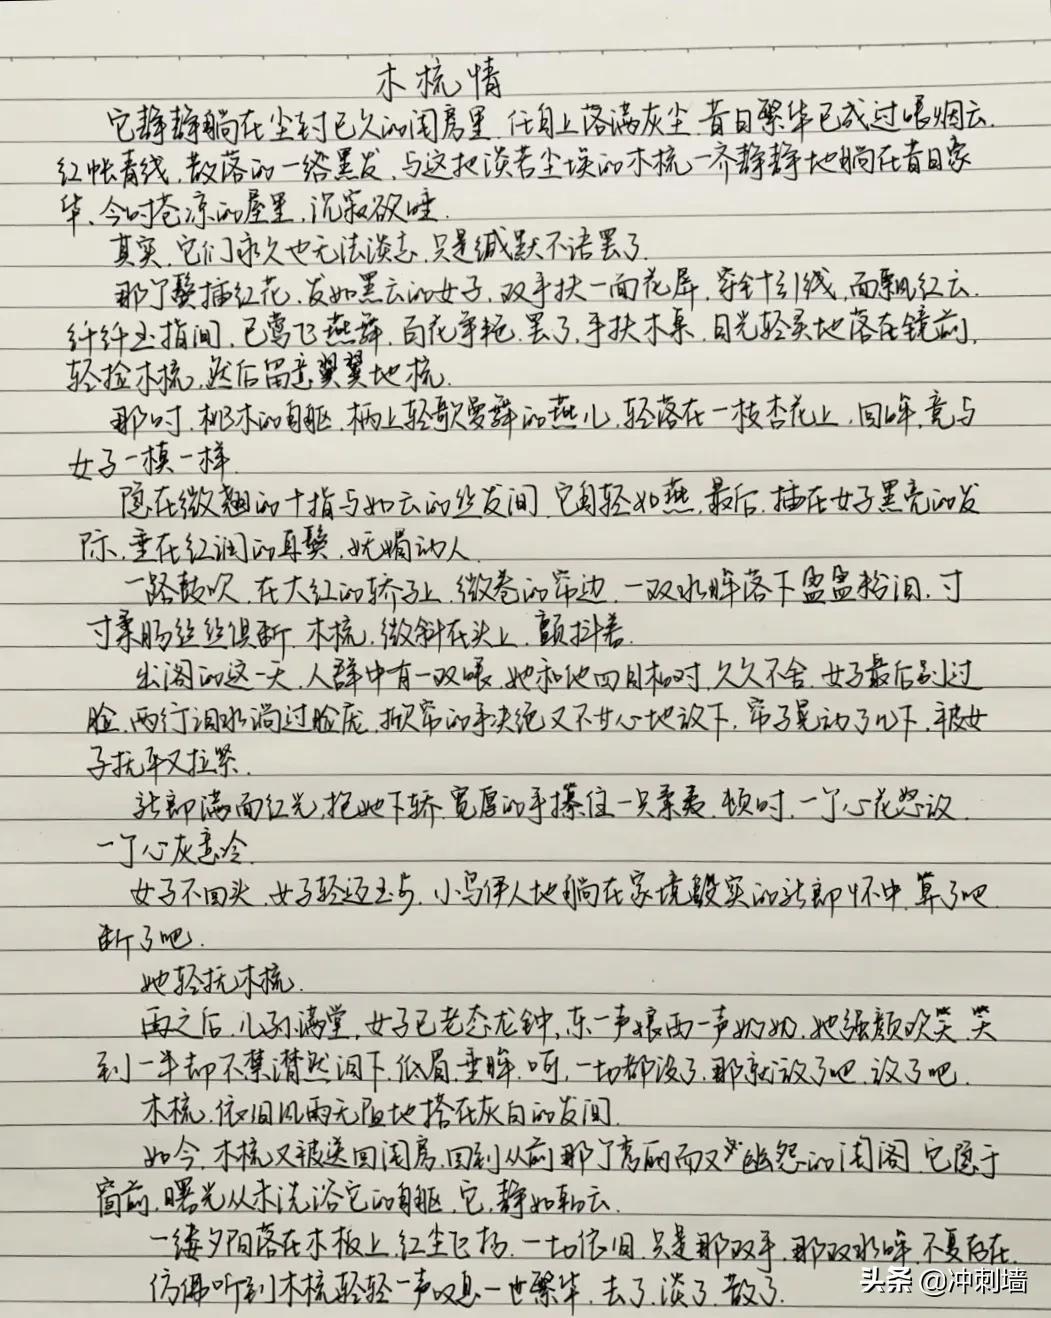 木梳情
它静静躺在尘封已久的闺房里.任身上落满灰尘.昔日繁华已成过眼烟云.
红帐青线.散落的一绺黑发,与这把淡若尘埃的木梳一齐静静地躺在昔日豪
华、今时苍凉的屋里,沉寂欲睡.
其实.它们永久也无法淡忘.只是缄默不语罢了.
那个鬓插红花、发如黑云的女子,双手扶一面花屏,穿针引线,面飘红云.
纤纤玉指间,已莺飞燕舞,百花争艳.罢了,手扶木桌,目光轻灵地落在镜前,
轻捡木梳,然后留意翼翼地梳.
那时.桃木的身躯.柄上轻歌曼舞的燕儿,轻落在一枝杏花上,回眸,竟与
女子一模一样.
隐在微翘的十指与如云的丝发间.它身轻如燕,最后.插在女子黑亮的发
际.垂在红润的耳鬓,妩媚动人.
一路鼓吹.在大红的轿子上.微卷的帘边.一双水眸落下盈盈粉泪.寸
寸柔肠丝丝俱断.木梳.微斜在头上.颤抖着.
出阁的这一天.人群中有一双眼.她和他四目相对.久久不舍.女子最后别过
脸.两行泪水淌过脸庞.掀帘的手决绝又不甘心地放下.帘子晃动了几下.被女
子抚平又拉紧.
新郎满面红光,抱她下轿.宽厚的手攥住一只柔荑.顿时.一个心花怒放.
一个心灰意冷.
女子不回头.女子轻迈玉步.小鸟伊人地躺在家境殷实的新郎怀中.算了吧.
断了吧.
她轻抚木梳.
再之后.儿孙满堂.女子已老态龙钟,东一声娘西一声奶奶,她强颜欢笑.笑
到一半却不禁潸然泪下.低眉.垂眸.呵,一切都没了.那就放了吧.放了吧.
木梳.依旧风雨无阻地搭在灰白的发间.
如今.木梳又被送回闺房.回到从前那个秀丽而又幽怨的闺阁.它隐于
窗前,曙光从未洗浴它的身躯.它,静如轻云.
一缕夕阳落在木板上.红尘飞扬.一切依旧.只是那双手.那双水眸.不复存在.
仿佛听到木梳轻轻一声叹息.一世繁华.去了.淡了.散了.
头条 @冲刺墙